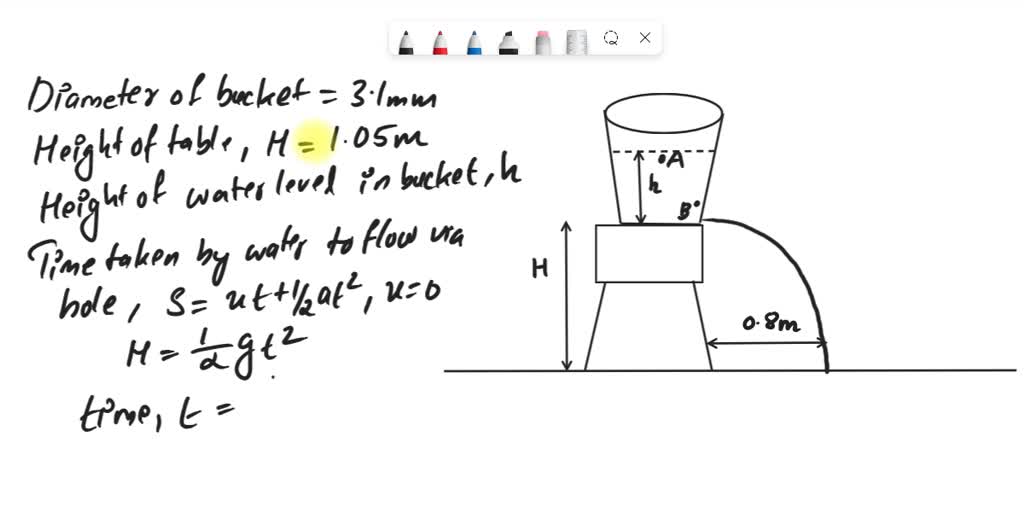 Diameter of bucket = 3.1mm
Height of table, H = 1.05m
Height of water level in bucket, h
Time taken by water to flow via
hole, S = ut + 1/2 at², u=0
H = 1/2 gt²
time, t =
A
h
B
H
0.8m